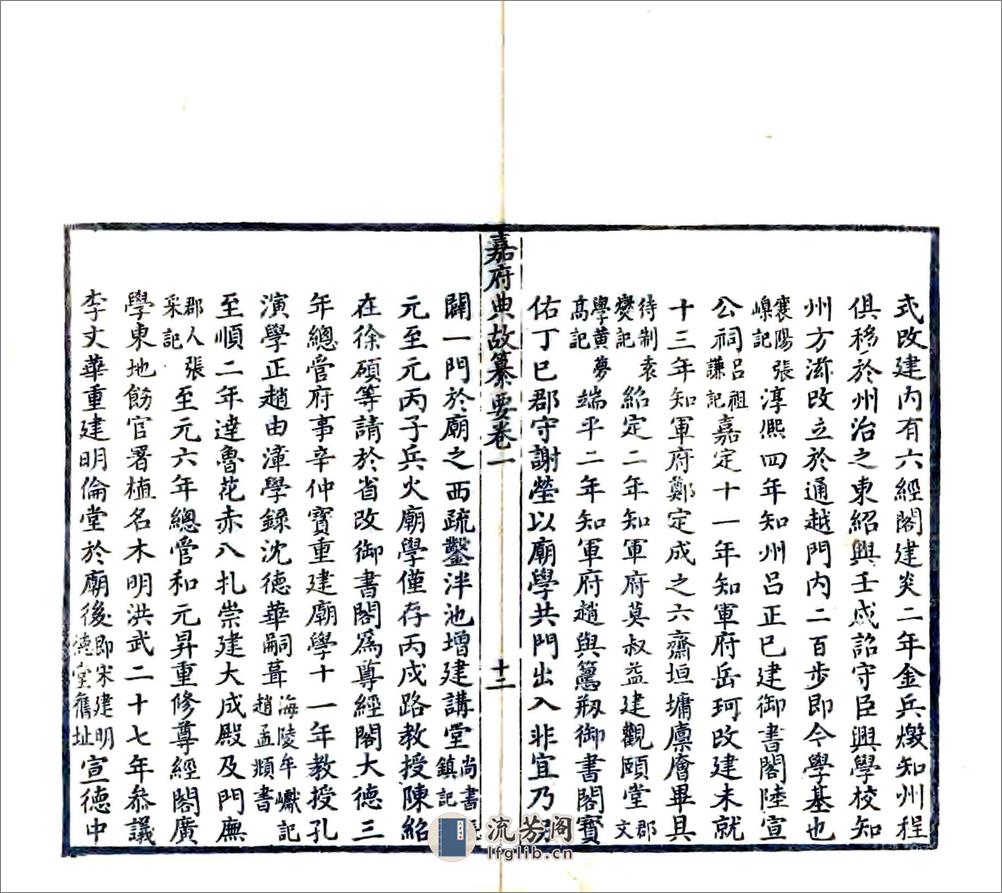 式改建內有六經閣建炎二年金兵燬知州程
俱移於州治之東紹興壬戌詔守臣興學校知
州方滋改立於通越門內二百步即今學基也
襄陽張嵲記淳熙四年知州呂正己建御書閣陸宣
公祠呂祖謙記嘉定十一年知軍府岳珂改建未就
十三年知軍府鄭定成之六齋垣墉廪廥畢具
待制袁燮記紹定二年知軍府莫叔益建觀頤堂文郡
學黃夢高記端平二年知軍府趙與𥲅剏御書閣寶
佑丁巳郡守謝塋以廟學共門出入非宜乃
嘉府典故纂要卷一
十二
闢一門於廟之西疏鑿泮池增建講堂尚書鎮記
元至元丙子兵火廟學僅存丙戌路教授陳紹
在徐碩等請於省改御書閣爲尊經閣大德三
年總管府事辛仲實重建廟學十一年教授孔
演學正趙由漳學錄沈德華嗣葺海陵牟巘記趙孟頫書
至順二年達魯花赤八扎崇建大成殿及門廡
郡人張采記至元六年總管和元昇重修尊經閣廣
學東地飭官署植名木明洪武二十七年叅議
李文華重建明倫堂於廟後即宋建明德堂舊址宣德中
流芳阁
lfglib.cn